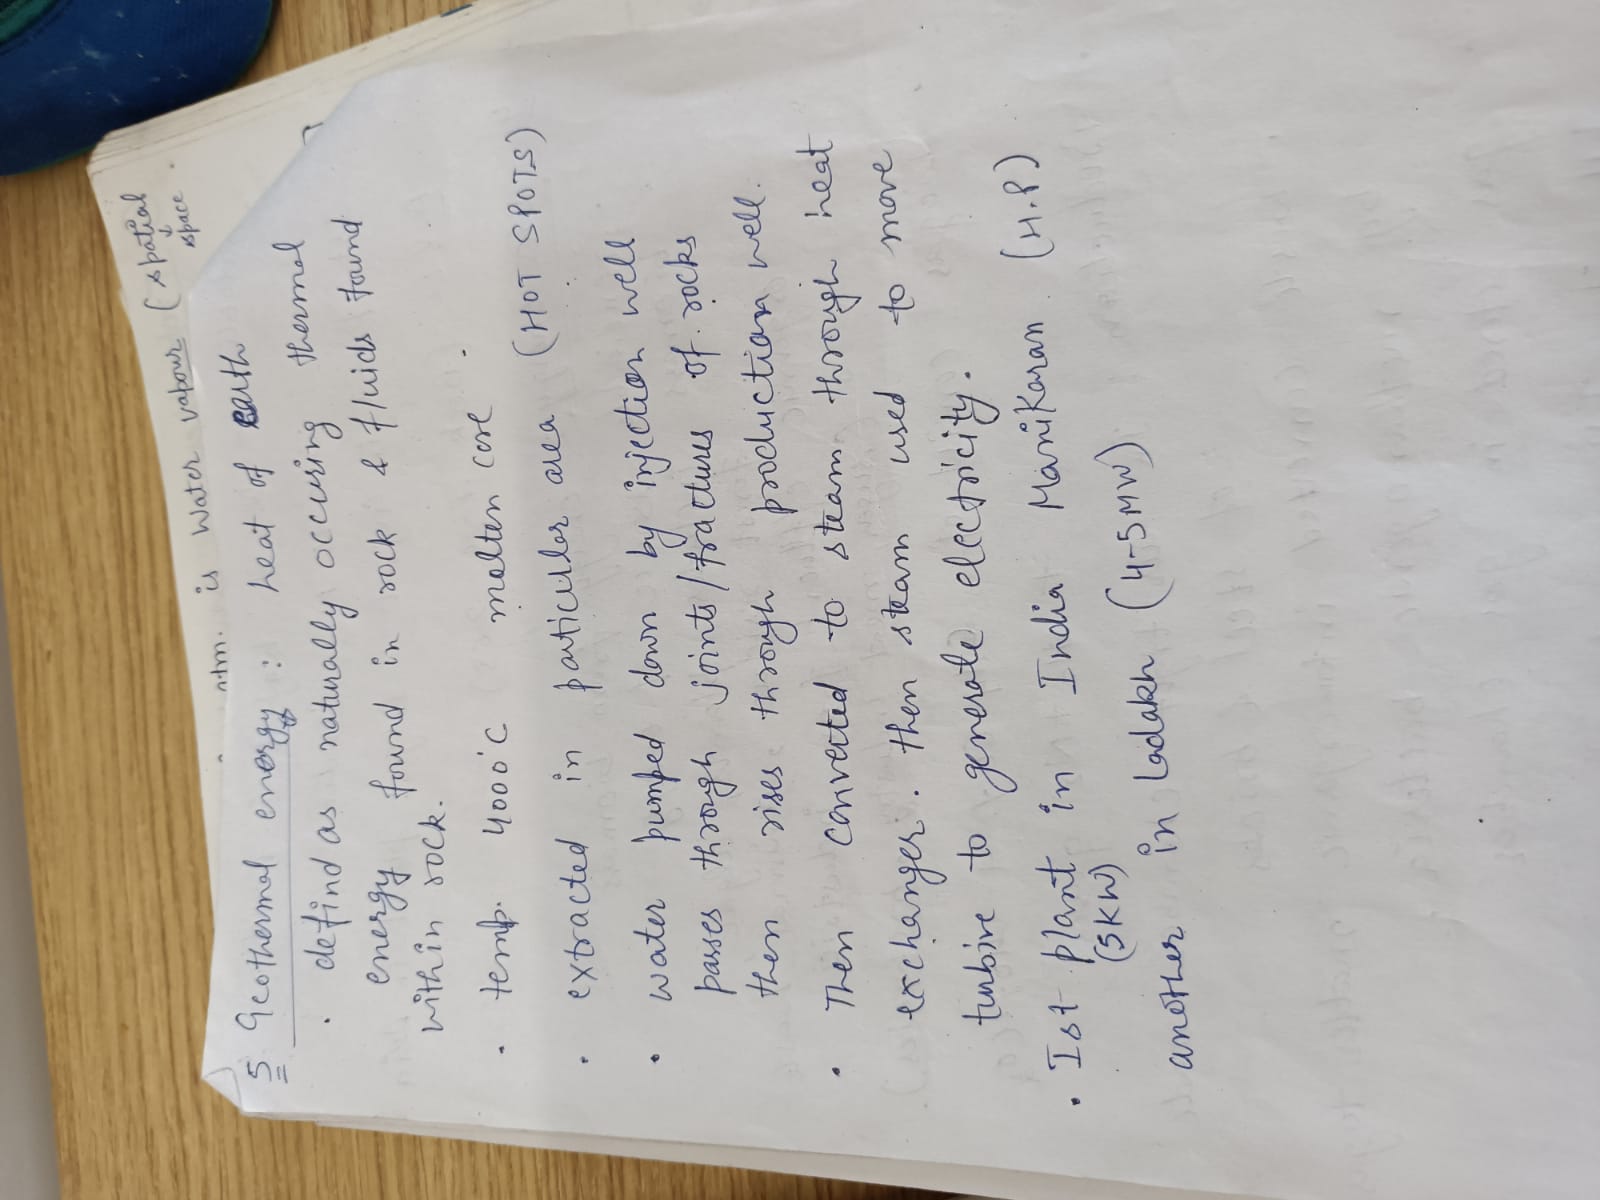 atm. is water vapour (spatial
↓
space
5 Geothermal energy : heat of earth
• defind as naturally occuring thermal
energy found in rock & fluids found
within rock.
• temp. 4000°C molten core
• extracted in particular area (HOT SPOTS)
• water pumped down by injection well
passes through joints/fractures of rocks
then rises through production well.
• Then converted to steam through heat
exchanger. then steam used to move
turbine to generate electricity.
• Ist plant in India Manikaran (H.P)
(5KW)
another in Ladakh (4-5MW)